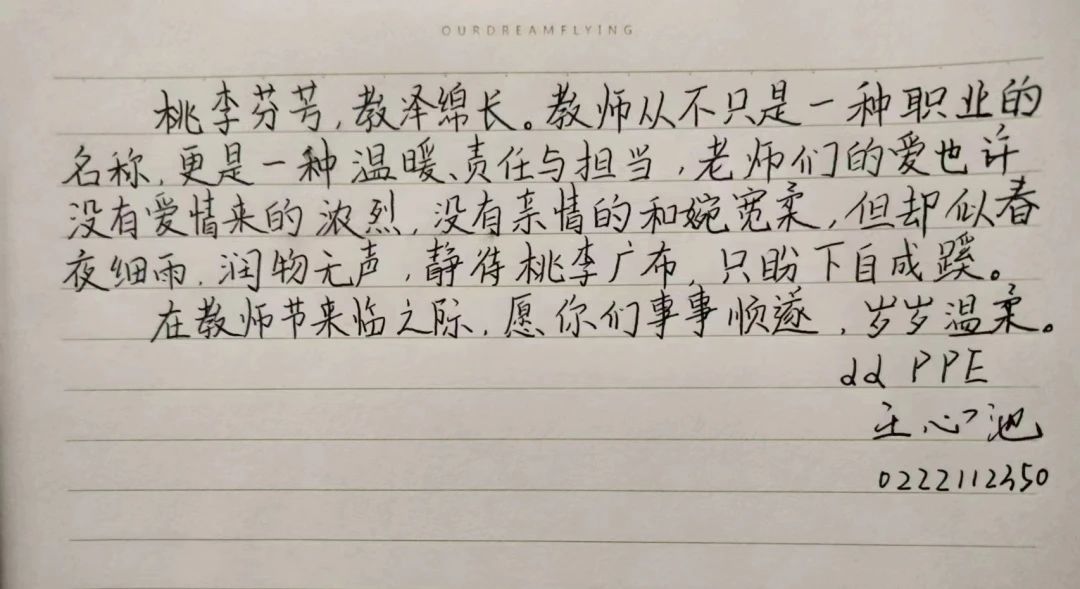 OURDREAMFLYING
桃李芬芳,教泽绵长。教师从不只是一种职业的
名称,更是一种温暖、责任与担当,老师们的爱也许
没有爱情来的浓烈,没有亲情的和婉宽柔,但却似春
夜细雨,润物无声,静待桃李广布,只盼下自成蹊。
在教师节来临之际,愿你们事事顺遂,岁岁温柔。
PPE
心池
0222112350